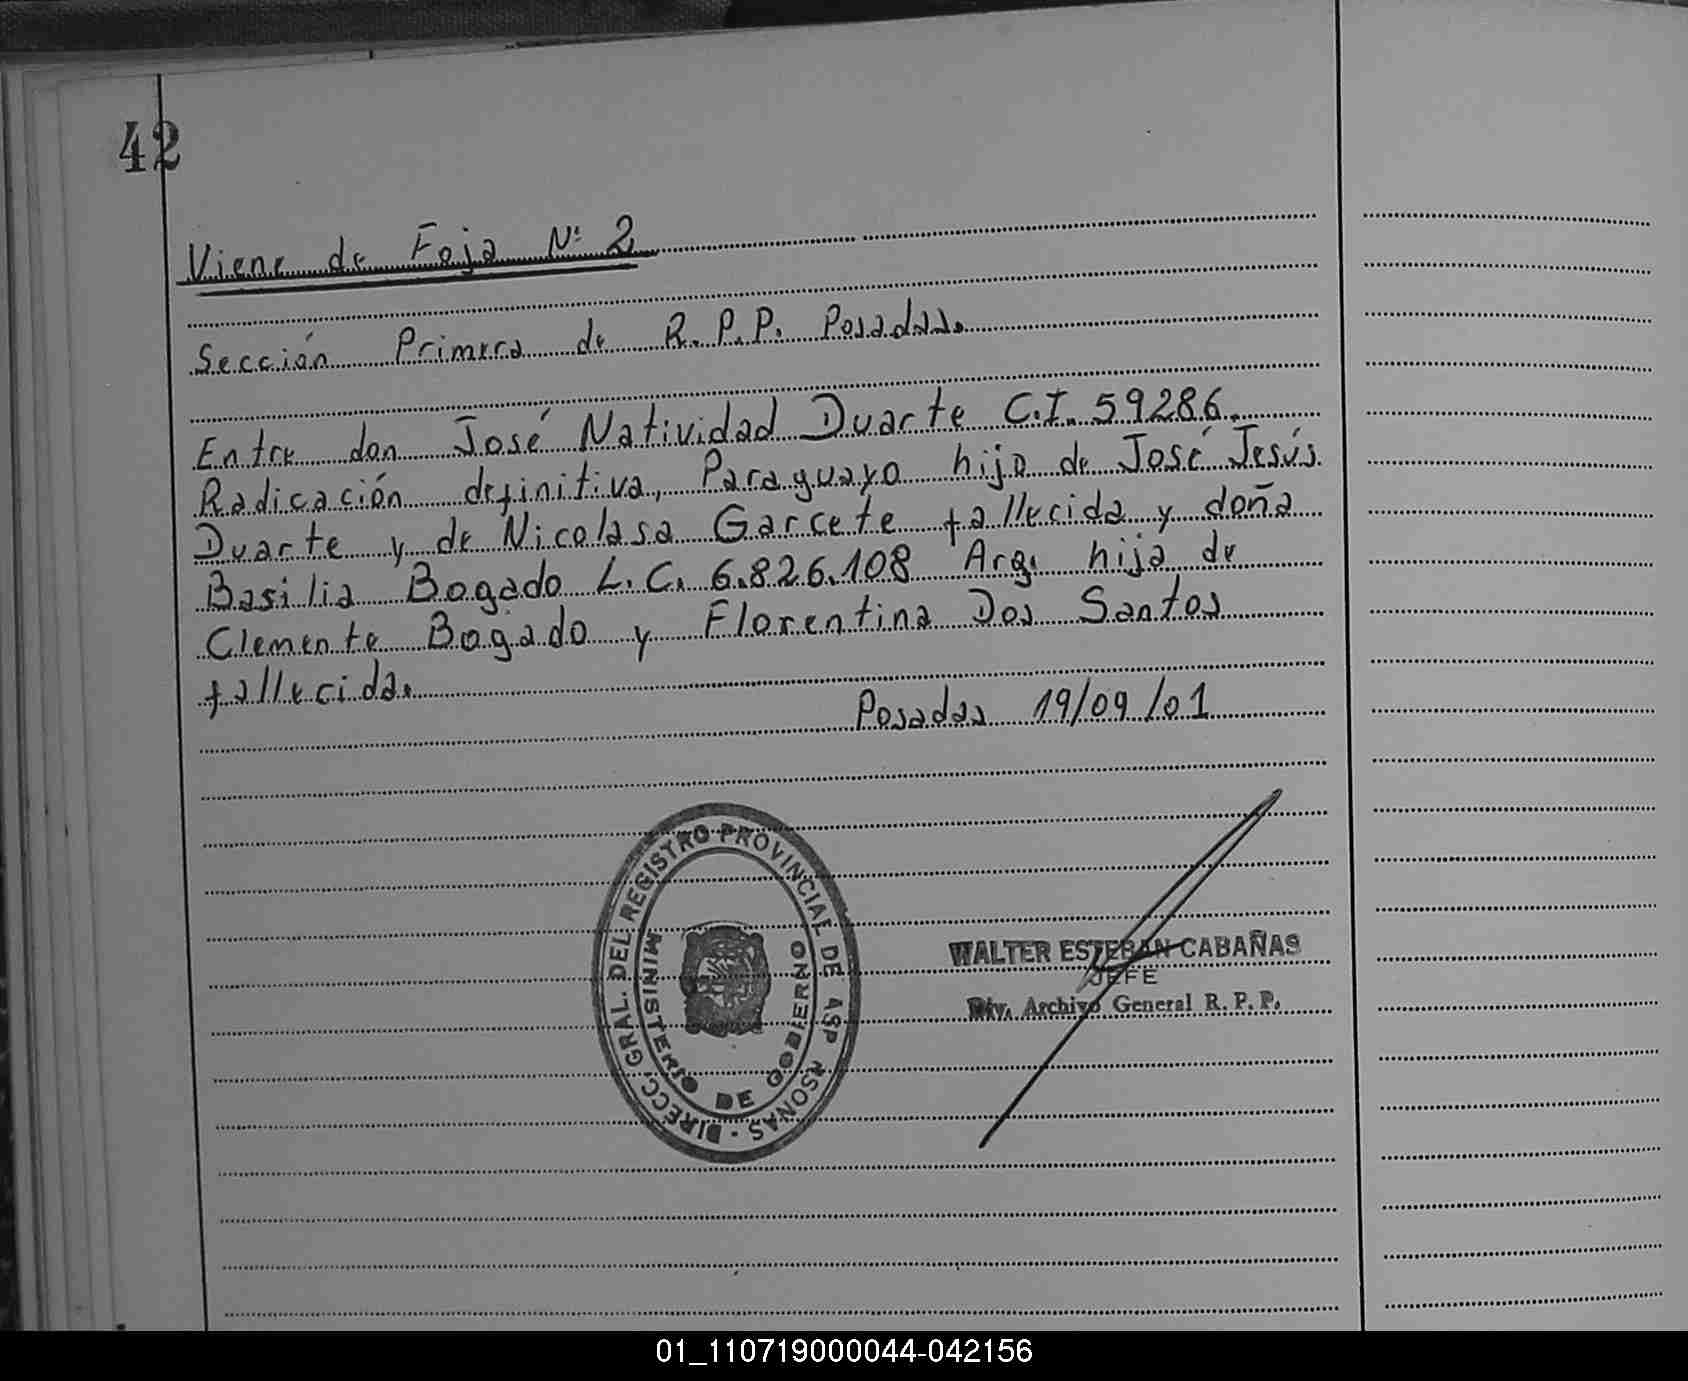 42
Viene de Foja Nº 2
Sección Primera de R.P.P. Posadas.
Entre don José Natividad Duarte C.I. 59286.
Radicación definitiva, Paraguayo hijo de José Jesús
Duarte y de Nicolasa Garcete fallecida y doña
Basilia Bogado L.C. 6.826.108 Arg. hija de
Clemente Bogado y Florentina Dos Santos
fallecida.
Posadas 19/09/01
DIRECC. GRAL. DEL REGISTRO PROVINCIAL DE
MINISTERIO DE GOBIERNO
WALTER ESTEBAN CABAÑAS
JEFE
Div. Archivo General R. P. P.
01_110719000044-042156